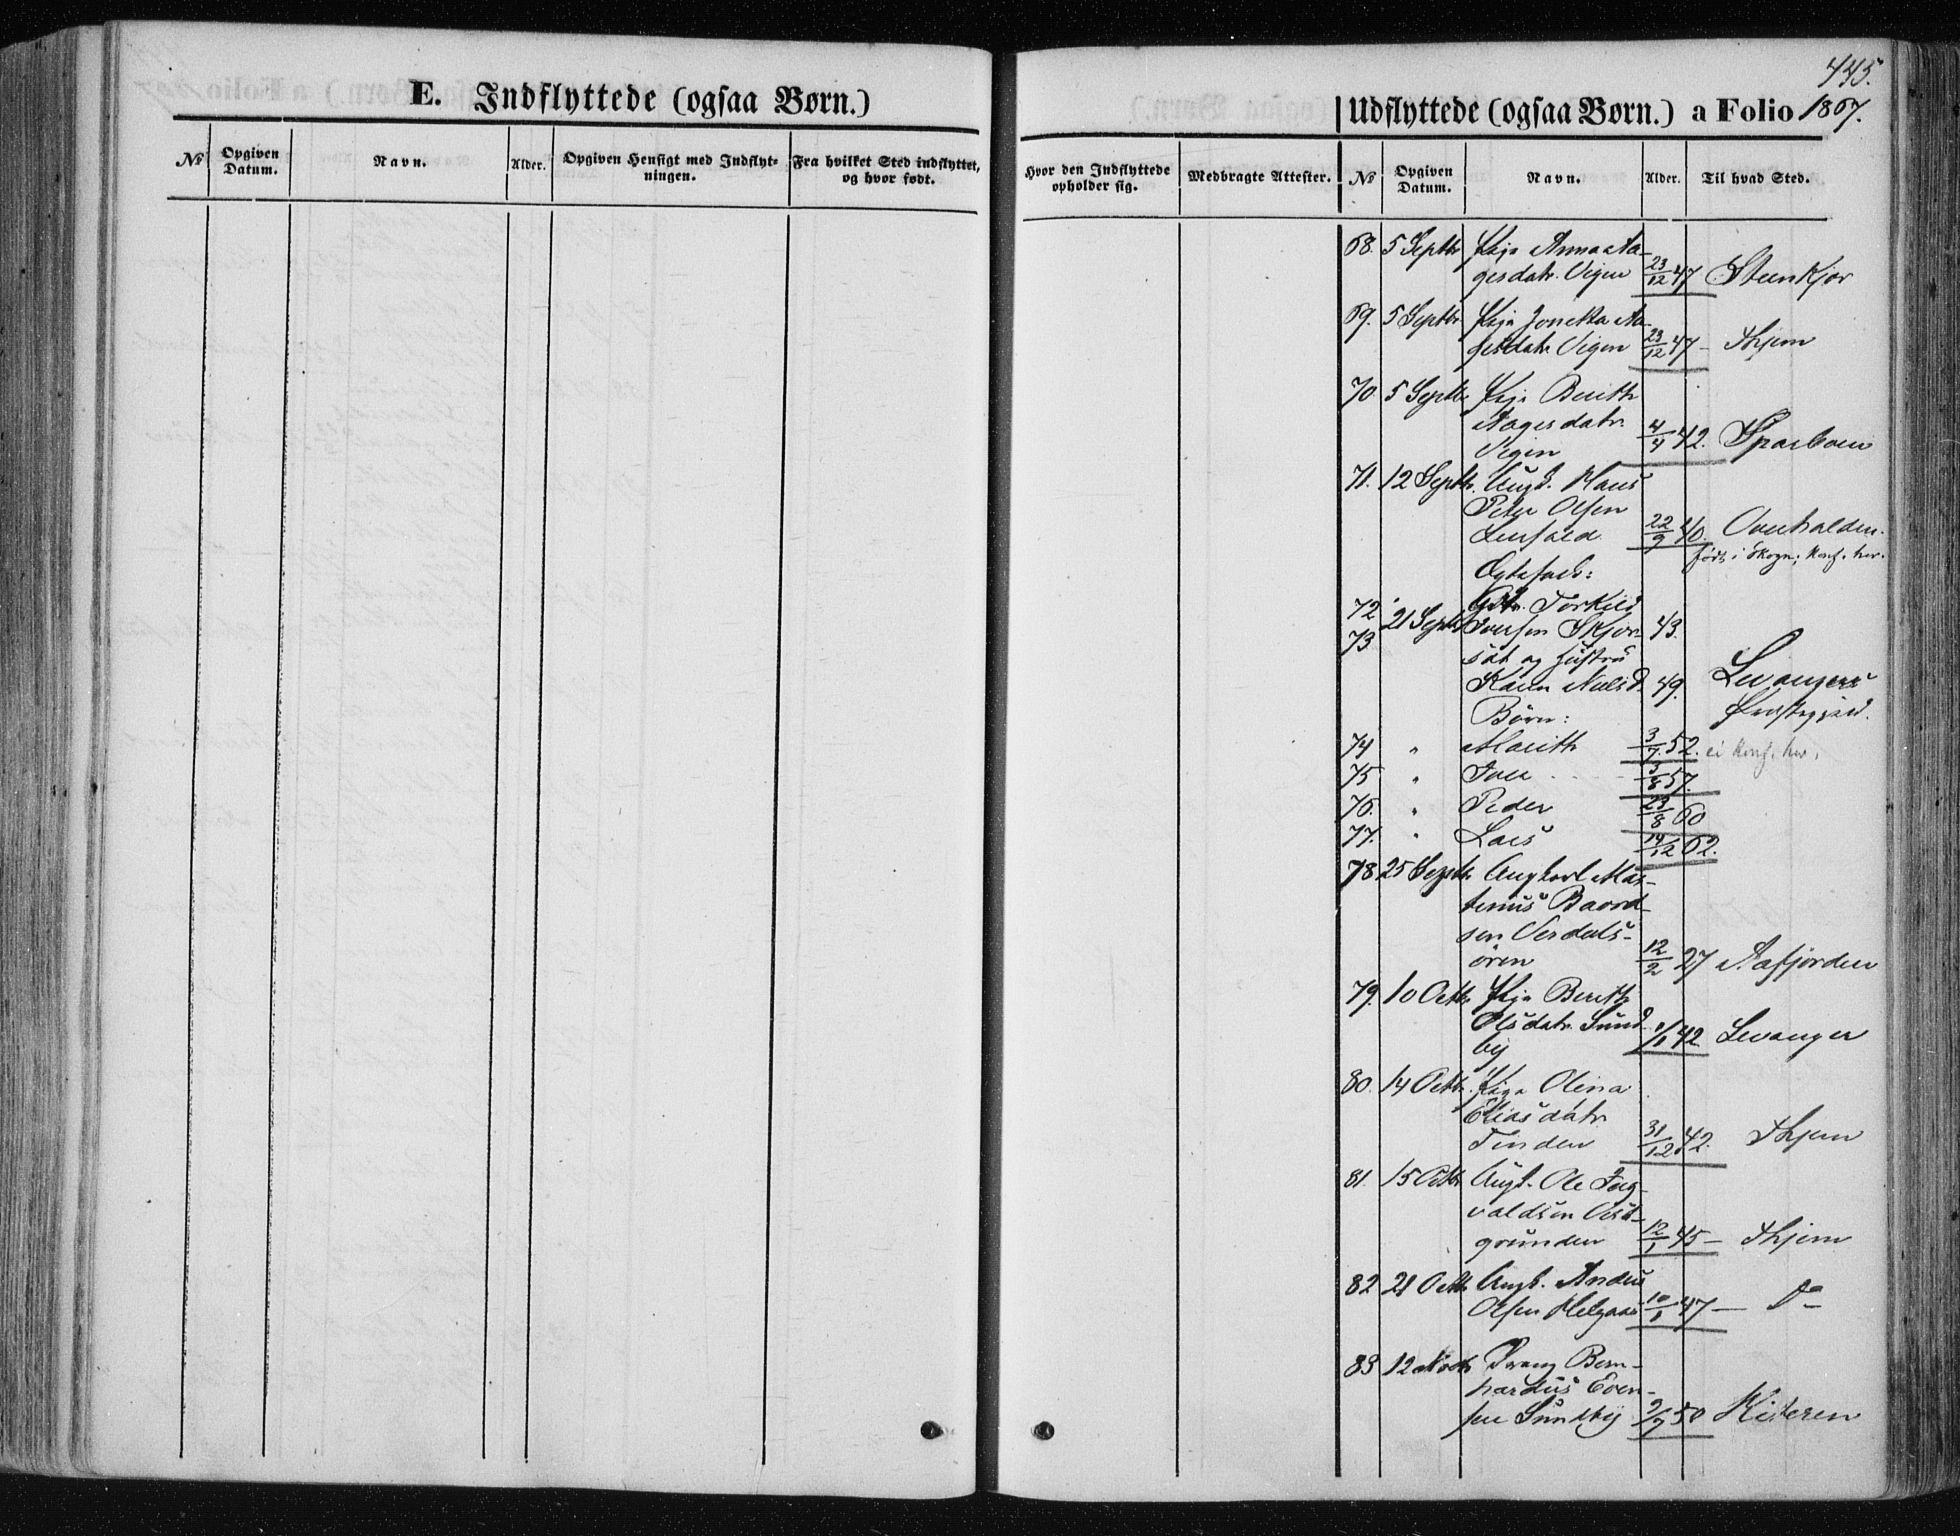 445.
E. Indflyttede (ogsaa Børn.)
Udflyttede (ogsaa Børn.) a Folio 1867.
№ Opgiven Datum. Navn. Alder. Opgiven Hensigt med Indflyt-
ningen. Fra hvilket Sted indflyttet,
og hvor født.
Hvor den Indflyttede
opholder sig. Medbragte Attester. № Opgiven
Datum. Navn. Alder. Til hvad Sted.
68. 5 Septbr Pige Anna Aa-
gesdatr. Vigen 23/12 47 Steenkjær
69. 5 Septbr Pige Jonetta Aa-
gesdatr Vigen 23/12 47 – Thjem
70. 5 Septbr Pige Berith
Aagesdatr
Vigen 4/4 42. Sparboen
71. 12 Septbr. Ungk. Hans
Peter Olsen
22/9 40. Overhalden.
født i Skogn; konf. her.
Egtefolk:
72. 21 Septbr Torkild
73. Iversen Skjør- 43.
dal og Hustru
Karen Nielsd. 49. Levangers
Præstegjeld.
Børn:
74 " Marith 3/7 52. ei konf. her.
75 " Iver 3/8 57.
76. " Peder 23/8 60
77. " Lars 14/12 62.
78 25 Septbr Ungkarl Mar-
tinus Baard-
sen Verdals-
ören 12/2 27 Aafjorden
79. 10 Octbr Pige Berith
Olsdatr. Sund-
by 1/1 42 Levanger
80. 14 Octbr. Pige Olina
Eliasdatr.
Tinden 31/12 42. Thjem
81. 15 Octbr Ungk. Ole Ing-
valdsen Öest-
grunden 12/1 45 – Thjem
82 21 Octbr Ungk. Anders
Olsen Helgaas 10/1 47 – Do
83 12 Novbr Dreng Bern-
hardus Even-
sen Sundby 2/7 50 Hitteren